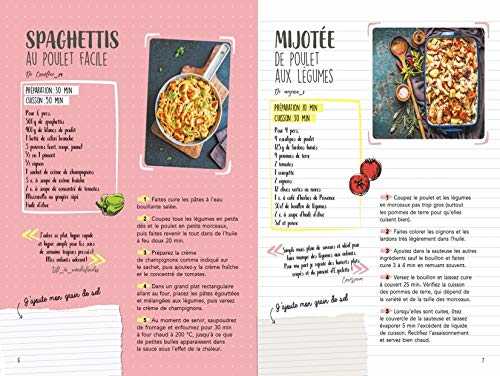 SPAGHETTIS
AU POULET FACILE
PRÉPARATION 30 MIN
CUISSON 50 MIN
Pour 6 pers.
500 g de spaghettis
400 g de blancs de poulet
1 botte de céleri branche
3 poivrons (vert, rouge, jaune)
½ ou 1 piment
½ oignon
1 sachet de crème de champignons
5 c. à soupe de crème fraîche
2 c. à soupe de concentré de tomates
Mozzarella ou gruyère râpé
Huile d'olive
1 Faites cuire les pâtes à l'eau
bouillante salée.
2 Coupez tous les légumes en petits
dés et le poulet en petits morceaux,
puis faites revenir le tout dans de l'huile
à feu doux 20 min.
3 Préparez la crème
de champignons comme indiqué sur
le sachet, puis ajoutez-y la crème fraîche
et le concentré de tomates.
4 Dans un grand plat rectangulaire
allant au four, placez les pâtes égouttées
et mélangées aux légumes, puis versez
la crème de champignons.
5 Au moment de servir, saupoudrez
de fromage et enfournez pour 30 min
à four chaud à 200 °C, jusqu'à ce que
de petites bulles apparaissent dans
la sauce sous l'effet de la chaleur.
J'ajoute mon grain de sel
6
MIJOTÉE
DE POULET
AUX LEGUMES
PRÉPARATION 10 MIN
CUISSON 30 MIN
Pour 4 pers.
4 escalopes de poulet
125 g de lardons fumés
4 pommes de terre
2 tomates
1 courgette
2 oignons
12 olives vertes ou noires
1 c. à café d'herbes de Provence
50 cl de bouillon de légumes
2 c. à soupe d'huile d'olive
Sel et poivre
1 Coupez le poulet et les légumes
en morceaux pas trop gros (surtout
les pommes de terre pour qu'elles
cuisent bien).
2 Faites colorer les oignons et les
lardons très légèrement dans l'huile.
3 Ajoutez dans la sauteuse les autres
ingrédients sauf le bouillon et faites
cuire 3 à 4 min en remuant souvent.
4 Versez le bouillon et laissez cuire
à couvert 25 min. Vérifiez la cuisson
des pommes de terre, qui dépend de
la variété et de la taille des morceaux.
5 Lorsqu'elles sont cuites,
découvrez la sauteuse et laissez
évaporer 5 min l'excédent de liquide
de cuisson. Rectifiez l'assaisonnement
et servez bien chaud.
J'ajoute mon grain de sel
7